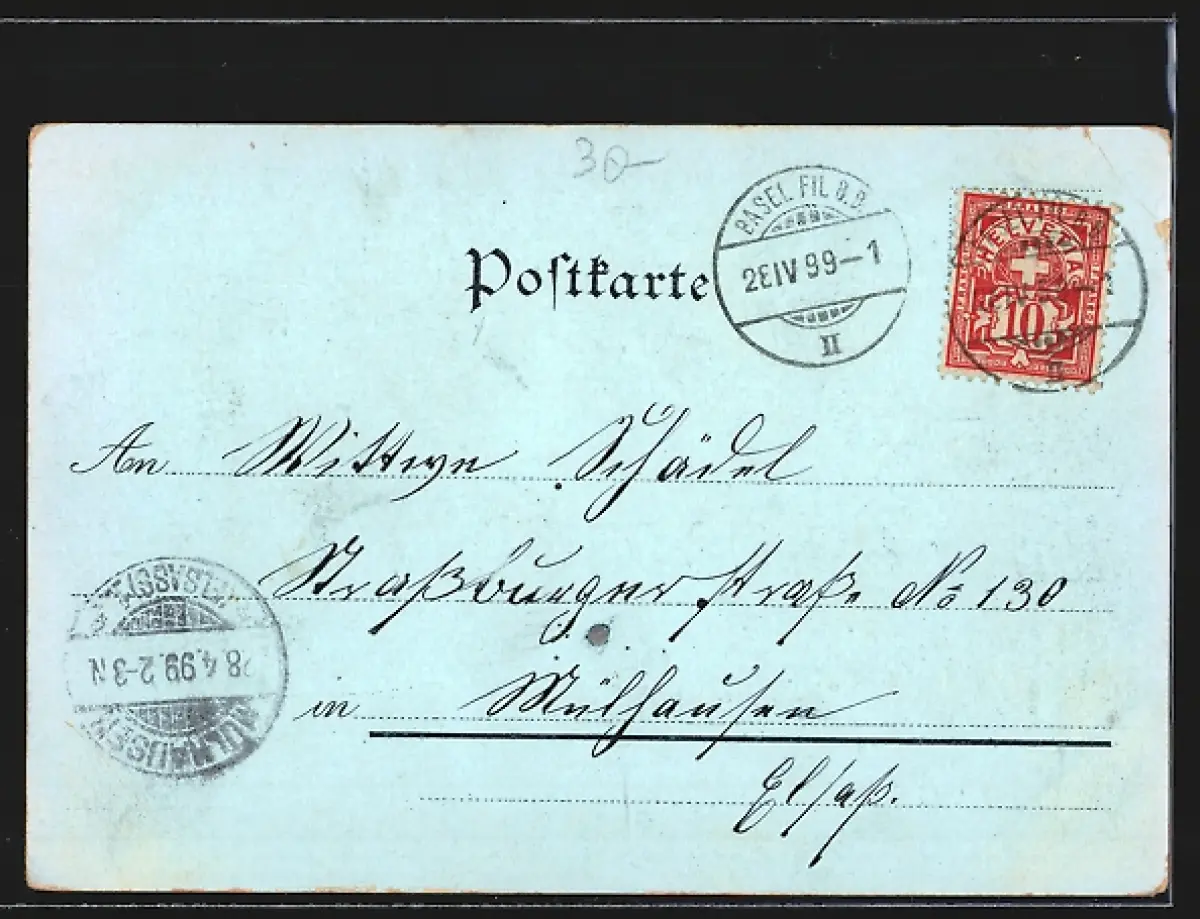 30
BASEL FIL B.B.
28 IV 99–1
II
HELVETIA
FRANCO
10
Postkarte
An Wittwe Schädel
Straßburger straße No 130
in Mülhausen
Elsaß.
MÜLHAUSEN
28.4.99.2-3N
(ELSASS)